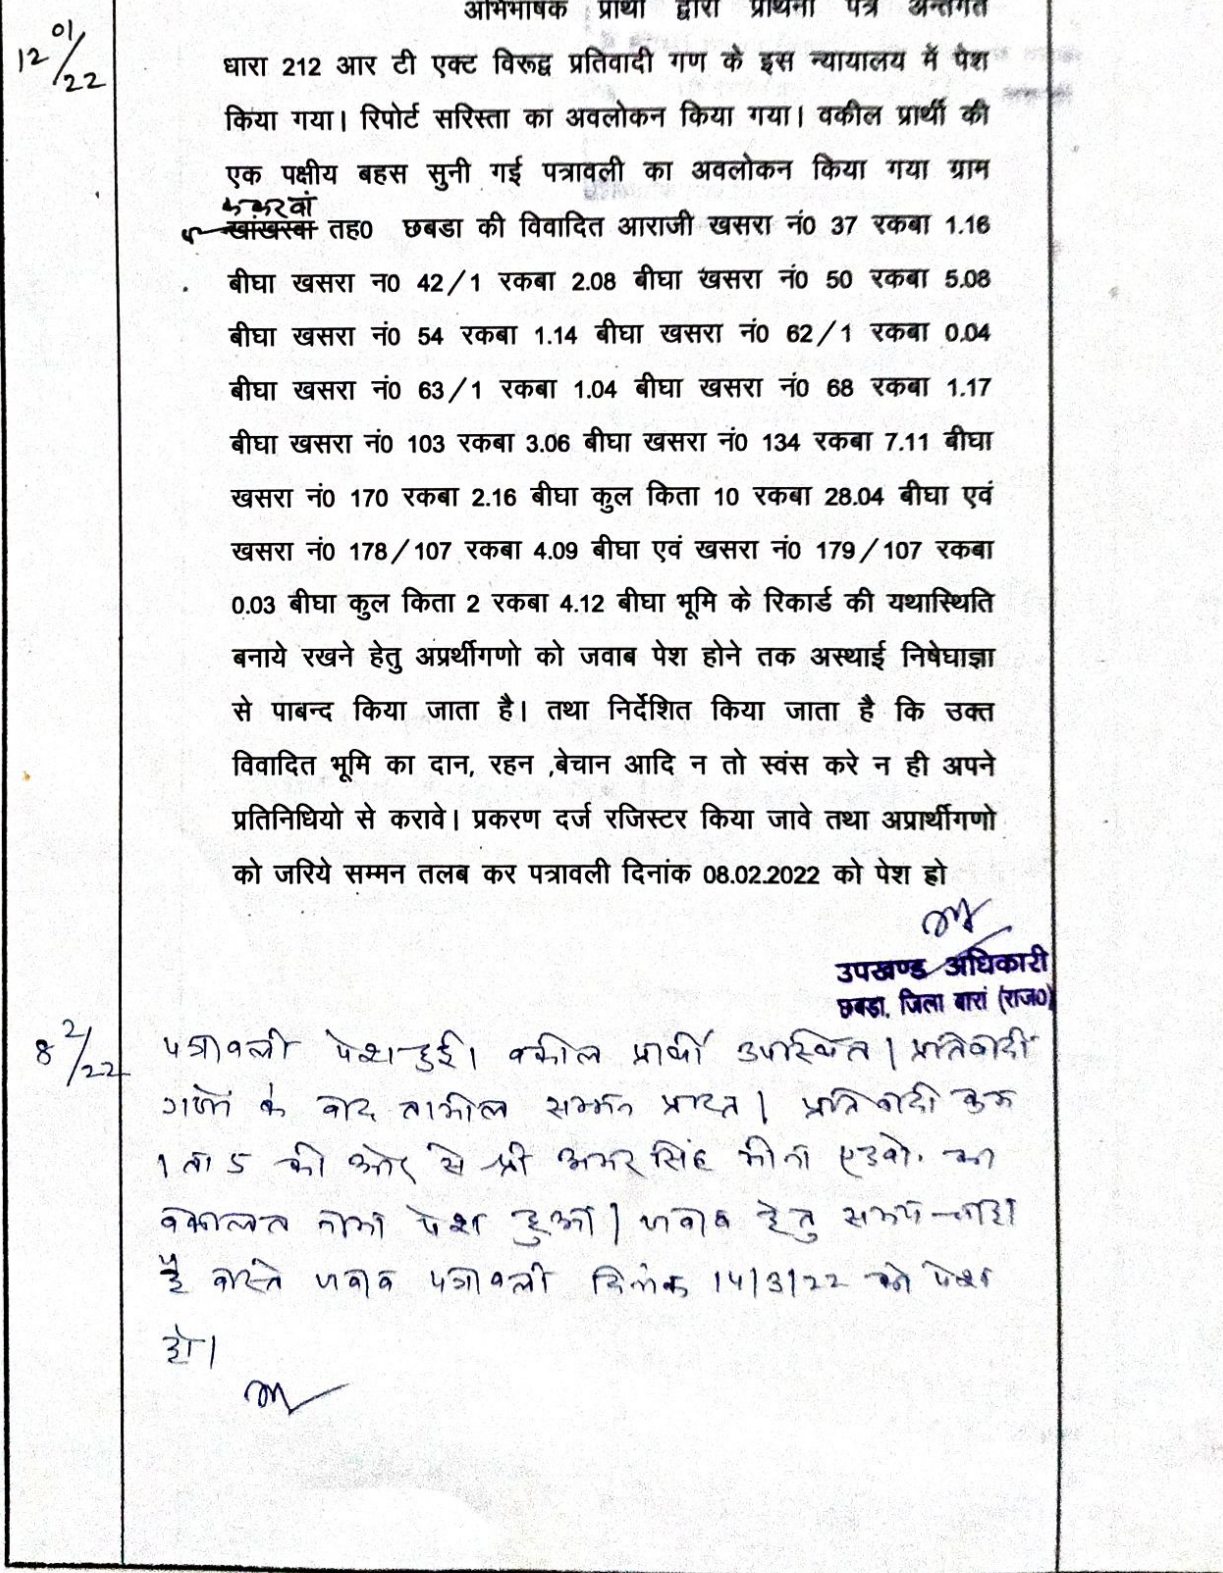 अभिभाषक प्रार्थी द्वारा प्रार्थना पत्र अन्तर्गत
12 01/22
धारा 212 आर टी एक्ट विरूद्व प्रतिवादी गण के इस न्यायालय में पेश
किया गया। रिपोर्ट सरिस्ता का अवलोकन किया गया। वकील प्रार्थी की
एक पक्षीय बहस सुनी गई पत्रावली का अवलोकन किया गया ग्राम
ककरवां
खांखरवा तह0 छबडा की विवादित आराजी खसरा नं0 37 रकबा 1.16
बीघा खसरा न0 42/1 रकबा 2.08 बीघा खसरा नं0 50 रकबा 5.08
बीघा खसरा नं0 54 रकबा 1.14 बीघा खसरा नं0 62/1 रकबा 0.04
बीघा खसरा नं0 63/1 रकबा 1.04 बीघा खसरा नं0 68 रकबा 1.17
बीघा खसरा नं0 103 रकबा 3.06 बीघा खसरा नं0 134 रकबा 7.11 बीघा
खसरा नं0 170 रकबा 2.16 बीघा कुल किता 10 रकबा 28.04 बीघा एवं
खसरा नं0 178/107 रकबा 4.09 बीघा एवं खसरा नं0 179/107 रकबा
0.03 बीघा कुल किता 2 रकबा 4.12 बीघा भूमि के रिकार्ड की यथास्थिति
बनाये रखने हेतु अप्रर्थीगणो को जवाब पेश होने तक अस्थाई निषेघाज्ञा
से पाबन्द किया जाता है। तथा निर्देशित किया जाता है कि उक्त
विवादित भूमि का दान, रहन ,बेचान आदि न तो स्वंस करे न ही अपने
प्रतिनिधियो से करावे। प्रकरण दर्ज रजिस्टर किया जावे तथा अप्रार्थीगणो
को जरिये सम्मन तलब कर पत्रावली दिनांक 08.02.2022 को पेश हो
उपखण्ड अधिकारी
छबडा, जिला बारां (राज0)
8 2/22
पत्रावली पेश हुई। वकील प्रार्थी उपस्थित। प्रतिवादी
गणों के बाद तामील सम्मन प्राप्त। प्रतिवादी क्रम
1 ता 5 की ओर से श्री अमर सिंह मीना एडवो. का
वकालत नामा पेश हुआ। जवाब हेतु समय चाहा
है वास्ते जवाब पत्रावली दिनांक 14/3/22 को पेश
हो।